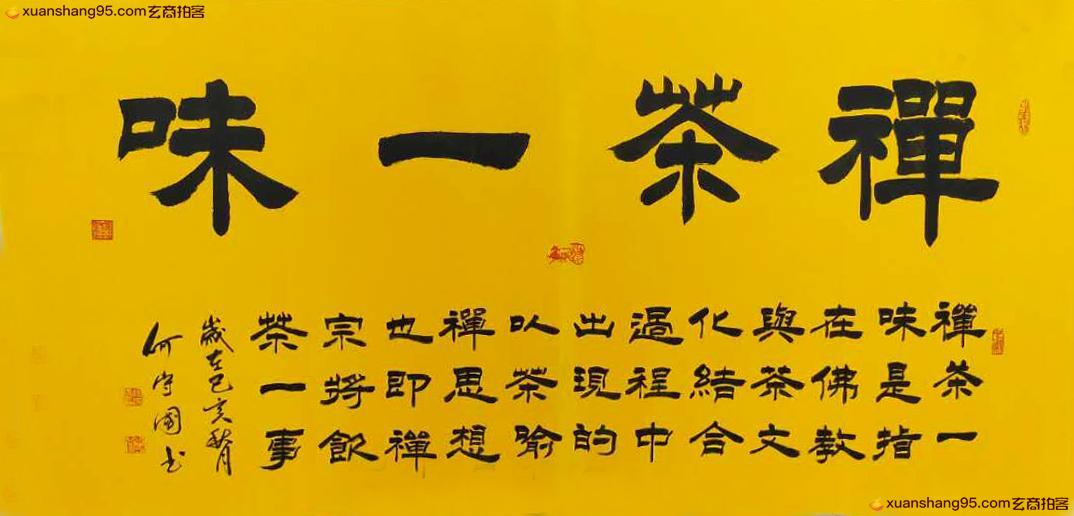 xuanshang95.com玄商拍客
禪茶一味
禪茶一
味是指
在佛教
與茶文
化結合
過程中
出現的
以茶喻
禪思想
也即禪
宗将飲
茶一事
歲在己亥秋月
何守國书
xuanshang95.com玄商拍客